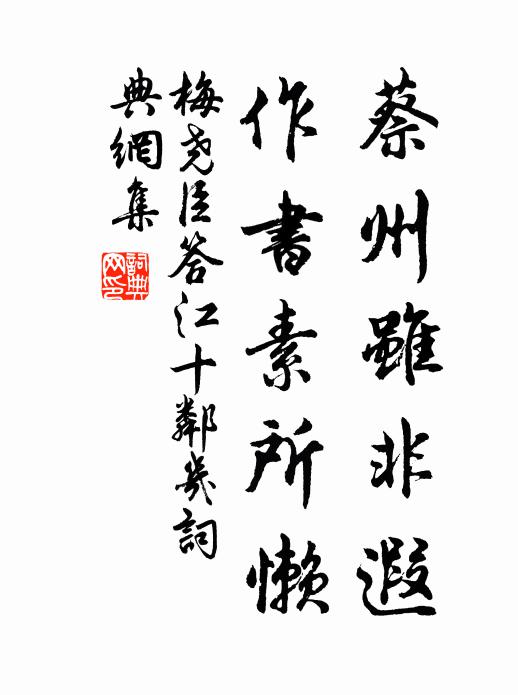 蔡州雖非遐
作書素所懶
梅堯臣答江十鄰幾詞
典網集
詞典網印